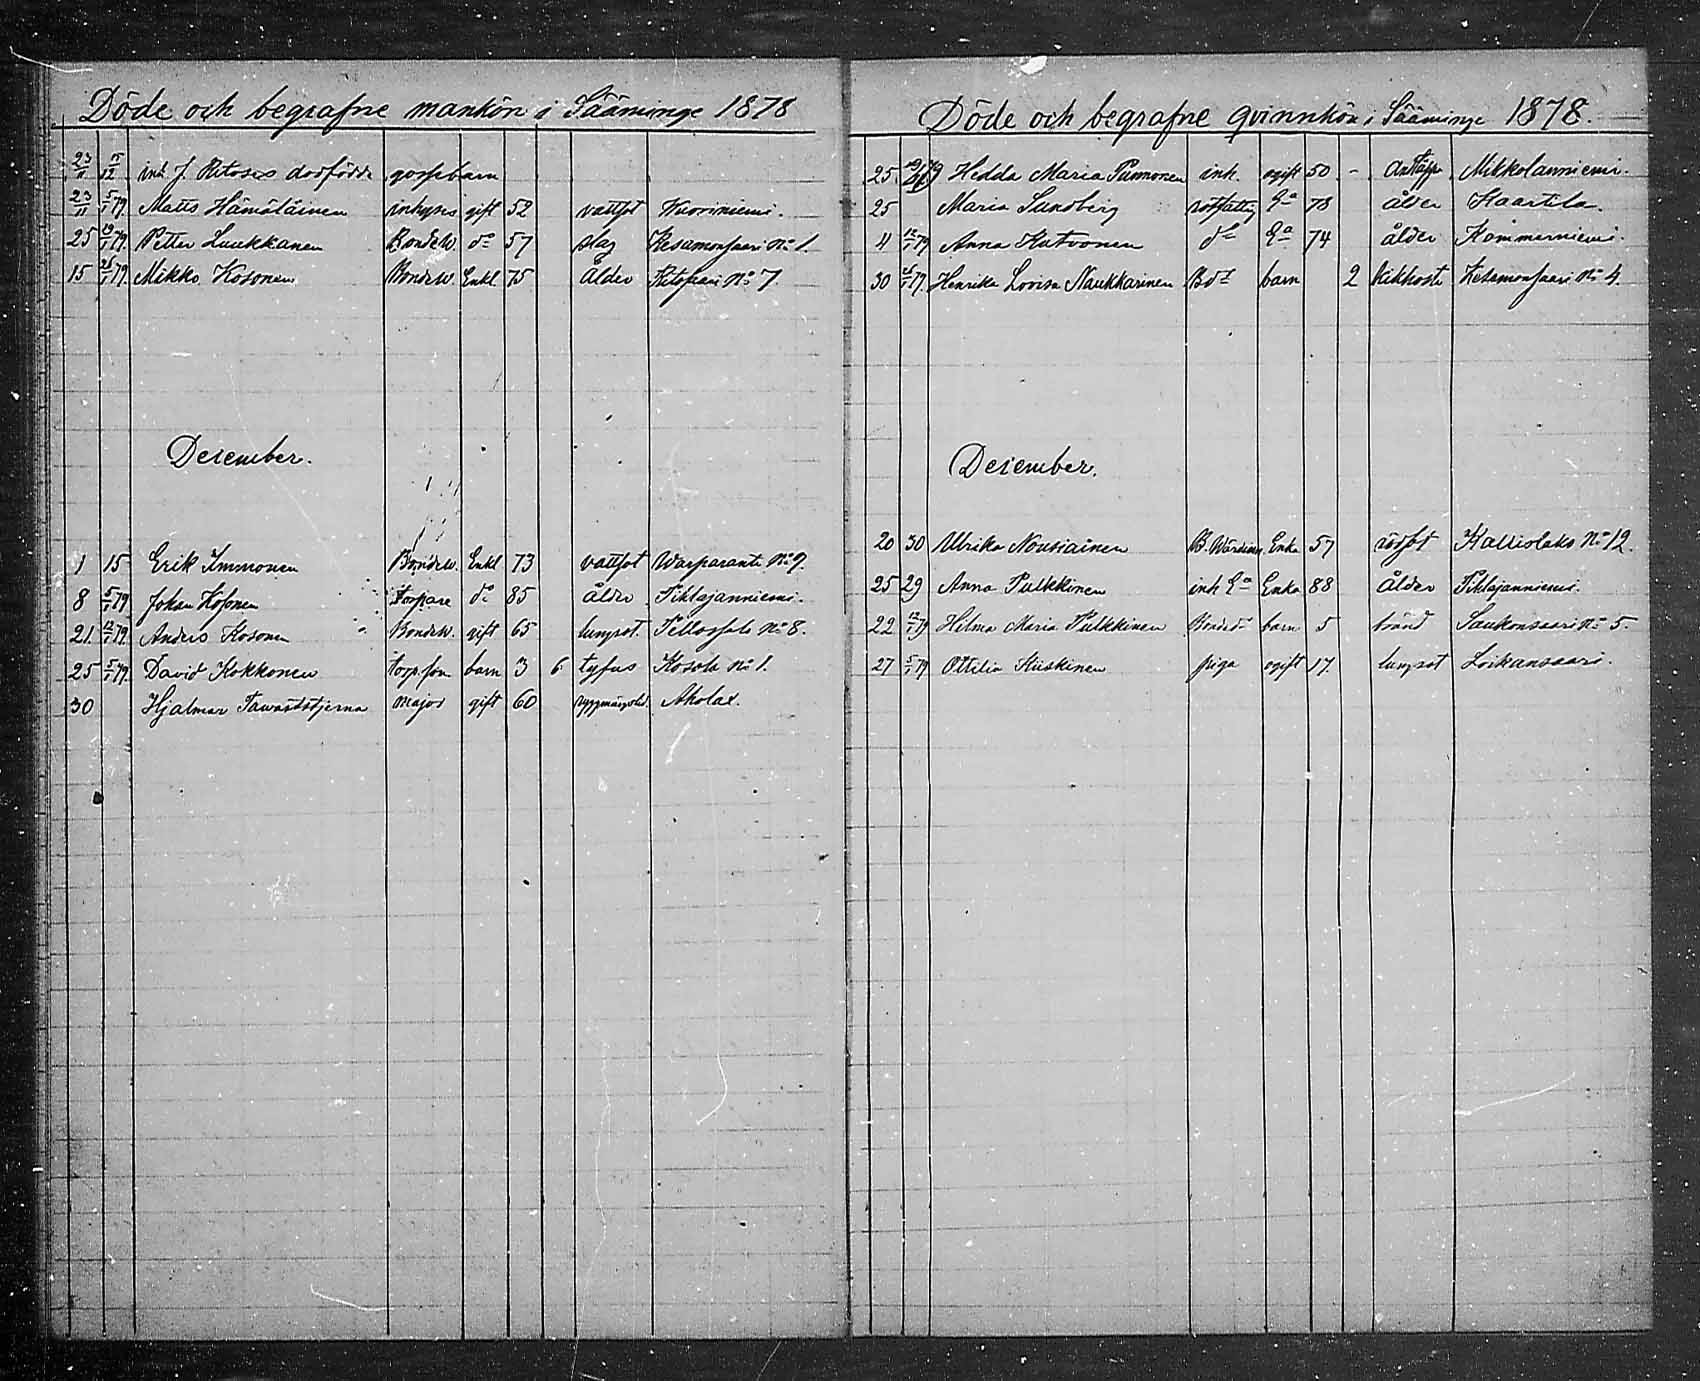 Döde och begrafne mankön i Sääminge 1878
23/11 15/12 inh. J. Ritoses dödfödde gossebarn
23/11 5/1 79. Matts Hämäläinen inhyses gift 52 vattsot Wuoriniemi.
25 19/1 79. Petter Luukkanen Bondew. do 57 slag Kesamonsaari No 1.
15 26/1 79. Mikko Kosonen Bondew. Enkl. 75 ålder Kitosaari No 7.
December.
1 15 Erik Immonen Bondew. Enkl 73 vattsot Warparanta No 9.
8 5/1 79 Johan Kosonen Torpare do 85 ålder Pihlajanniemi.
21. 12/1 79. Anders Kosonen Bondew. gift 65 lungsot. Pellossalo No 8.
25 5/1 79. David Kokkonen torp.son barn 3 6 tyfus Kosola No 1.
30 Hjalmar Tawaststjerna Major gift 60 ryggmärgslid. Aholax.
Döde och begrafne qvinnkön i Sääminge 1878.
25. 79 Hedda Maria Punnonen inh. ogift 50 - Mikkolanniemi.
25 Maria Sundberg rotefattig Ea 78 ålder Haartila.
4 12/1 79 Anna Kutvonen do Ea 74 ålder Kommerniemi.
30 26/1 79. Henrika Lovisa Naukkarinen Bdr barn 2 kikhosta Kesamonsaari No 4.
December.
20 30 Ulrika Nousiainen B. Wärdinna Enka 57 Kallislaks No 12.
25 29 Anna Pulkkinen inh Ea Enka 88 ålder Pihlajanniemi.
22 12/1 79 Hilma Maria Pulkkinen Bonded. barn 5 bränd Saukonsaari No 5.
27 5/1 79 Ottilia Kiiskinen piga ogift 17. lungsot Loikansaari.